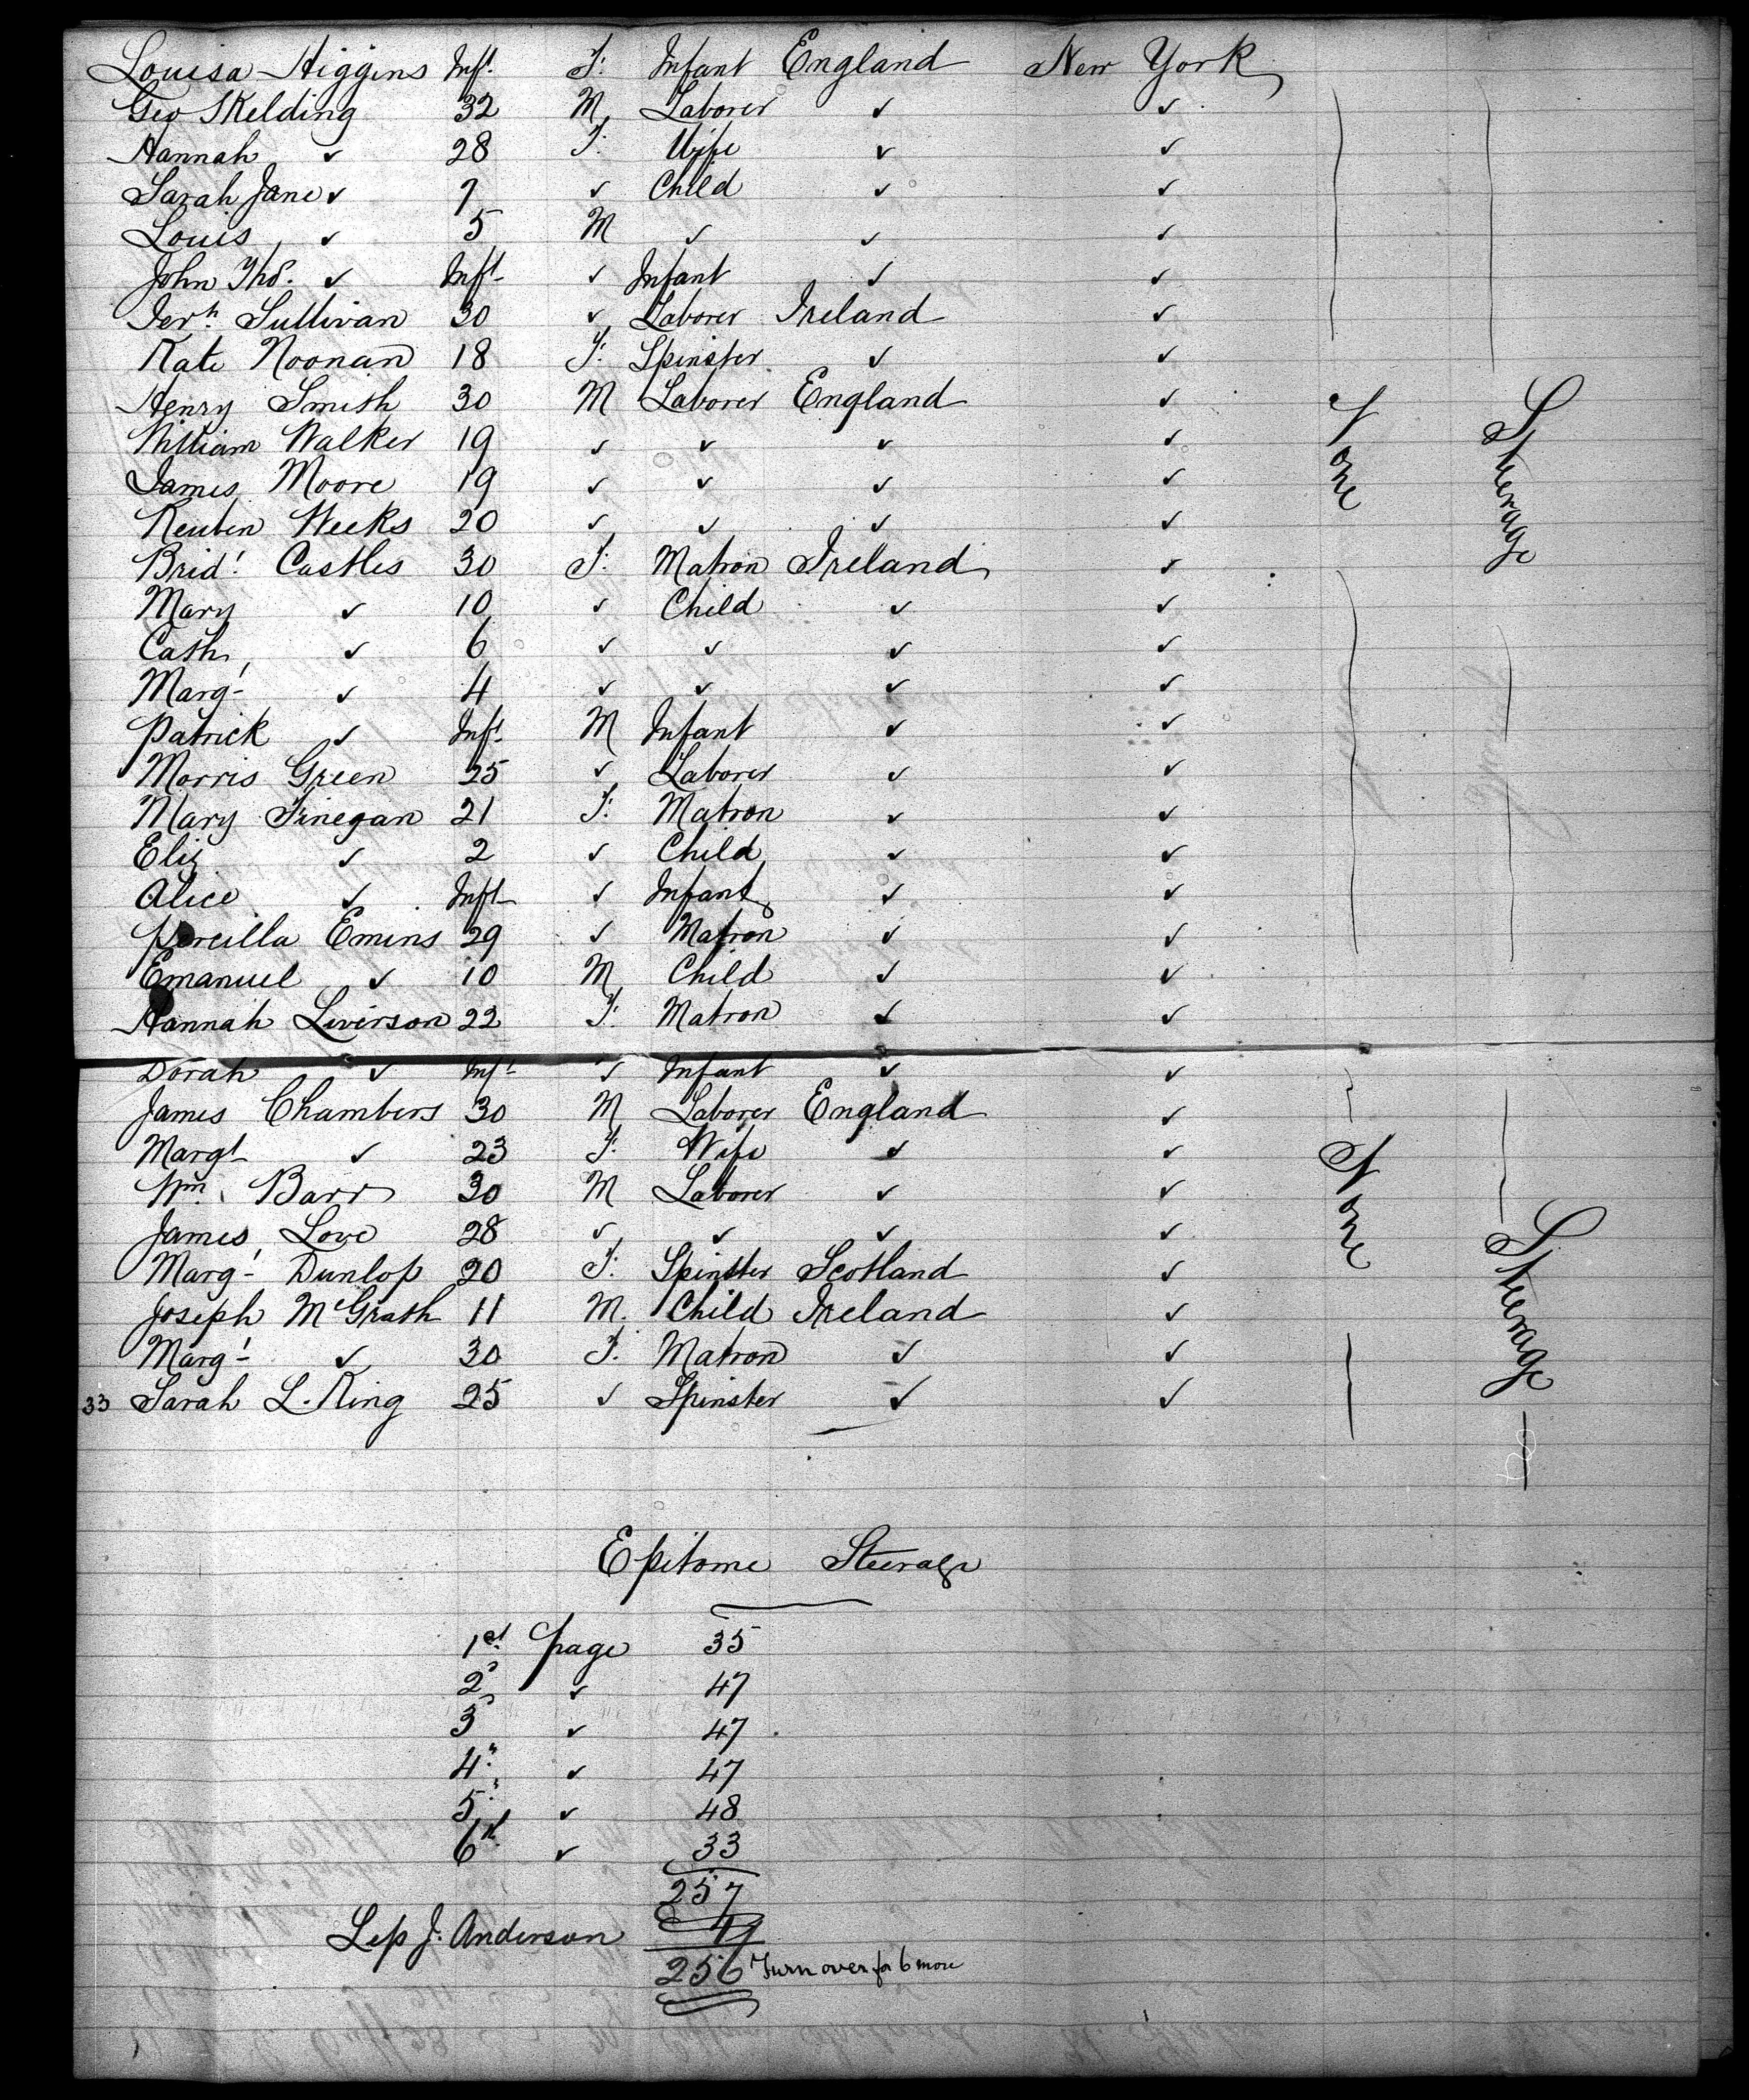 Louisa Higgins Inft. F. Infant England New York
Geo Skelding 32 M Laborer ✓ ✓
Hannah ✓ 28 F. Wife ✓ ✓
Sarah Jane ✓ 7 ✓ Child ✓ ✓
Louis ✓ 5 M ✓ ✓ ✓
John Thos. ✓ Inft ✓ Infant ✓ ✓
Jerh. Sullivan 30 ✓ Laborer Ireland ✓
Kate Noonan 18 F. Spinster ✓ ✓
Henry Smith 30 M Laborer England ✓
William Walker 19 ✓ ✓ ✓ ✓
James Moore 19 ✓ ✓ ✓ ✓
Reuben Weeks 20 ✓ ✓ ✓ ✓
None Steerage
Bridt. Castles 30 F. Matron Ireland ✓
Mary ✓ 10 ✓ Child ✓ ✓
Cath ✓ 6 ✓ ✓ ✓ ✓
Margt ✓ 4 ✓ ✓ ✓ ✓
Patrick ✓ Inft M Infant ✓ ✓
Morris Green 25 ✓ Laborer ✓ ✓
Mary Finegan 21 F. Matron ✓ ✓
Eliz ✓ 2 ✓ Child ✓ ✓
Alice ✓ Inft ✓ Infant ✓ ✓
Percilla Emins 29 ✓ Matron ✓ ✓
Emanuel ✓ 10 M Child ✓ ✓
Hannah Liverson 22 F. Matron ✓ ✓
Dorah ✓ Inft ✓ Infant ✓ ✓
James Chambers 30 M Laborer England ✓
Margt ✓ 23 F. Wife ✓ ✓
Wm. Barr 30 M Laborer ✓ ✓
James Love 28 ✓ ✓ ✓ ✓
None Steerage
Margt Dunlop 20 F. Spinster Scotland ✓
Joseph McGrath 11 M. Child Ireland ✓
Margt ✓ 30 F. Matron ✓ ✓
33 Sarah L. King 25 ✓ Spinster ✓ ✓
Epitome Steerage
1st. page 35
2" ✓ 47
3" ✓ 47
4" ✓ 47
5" ✓ 48
6th ✓ 33
257
J. Anderson
256 Turn over for 6 more